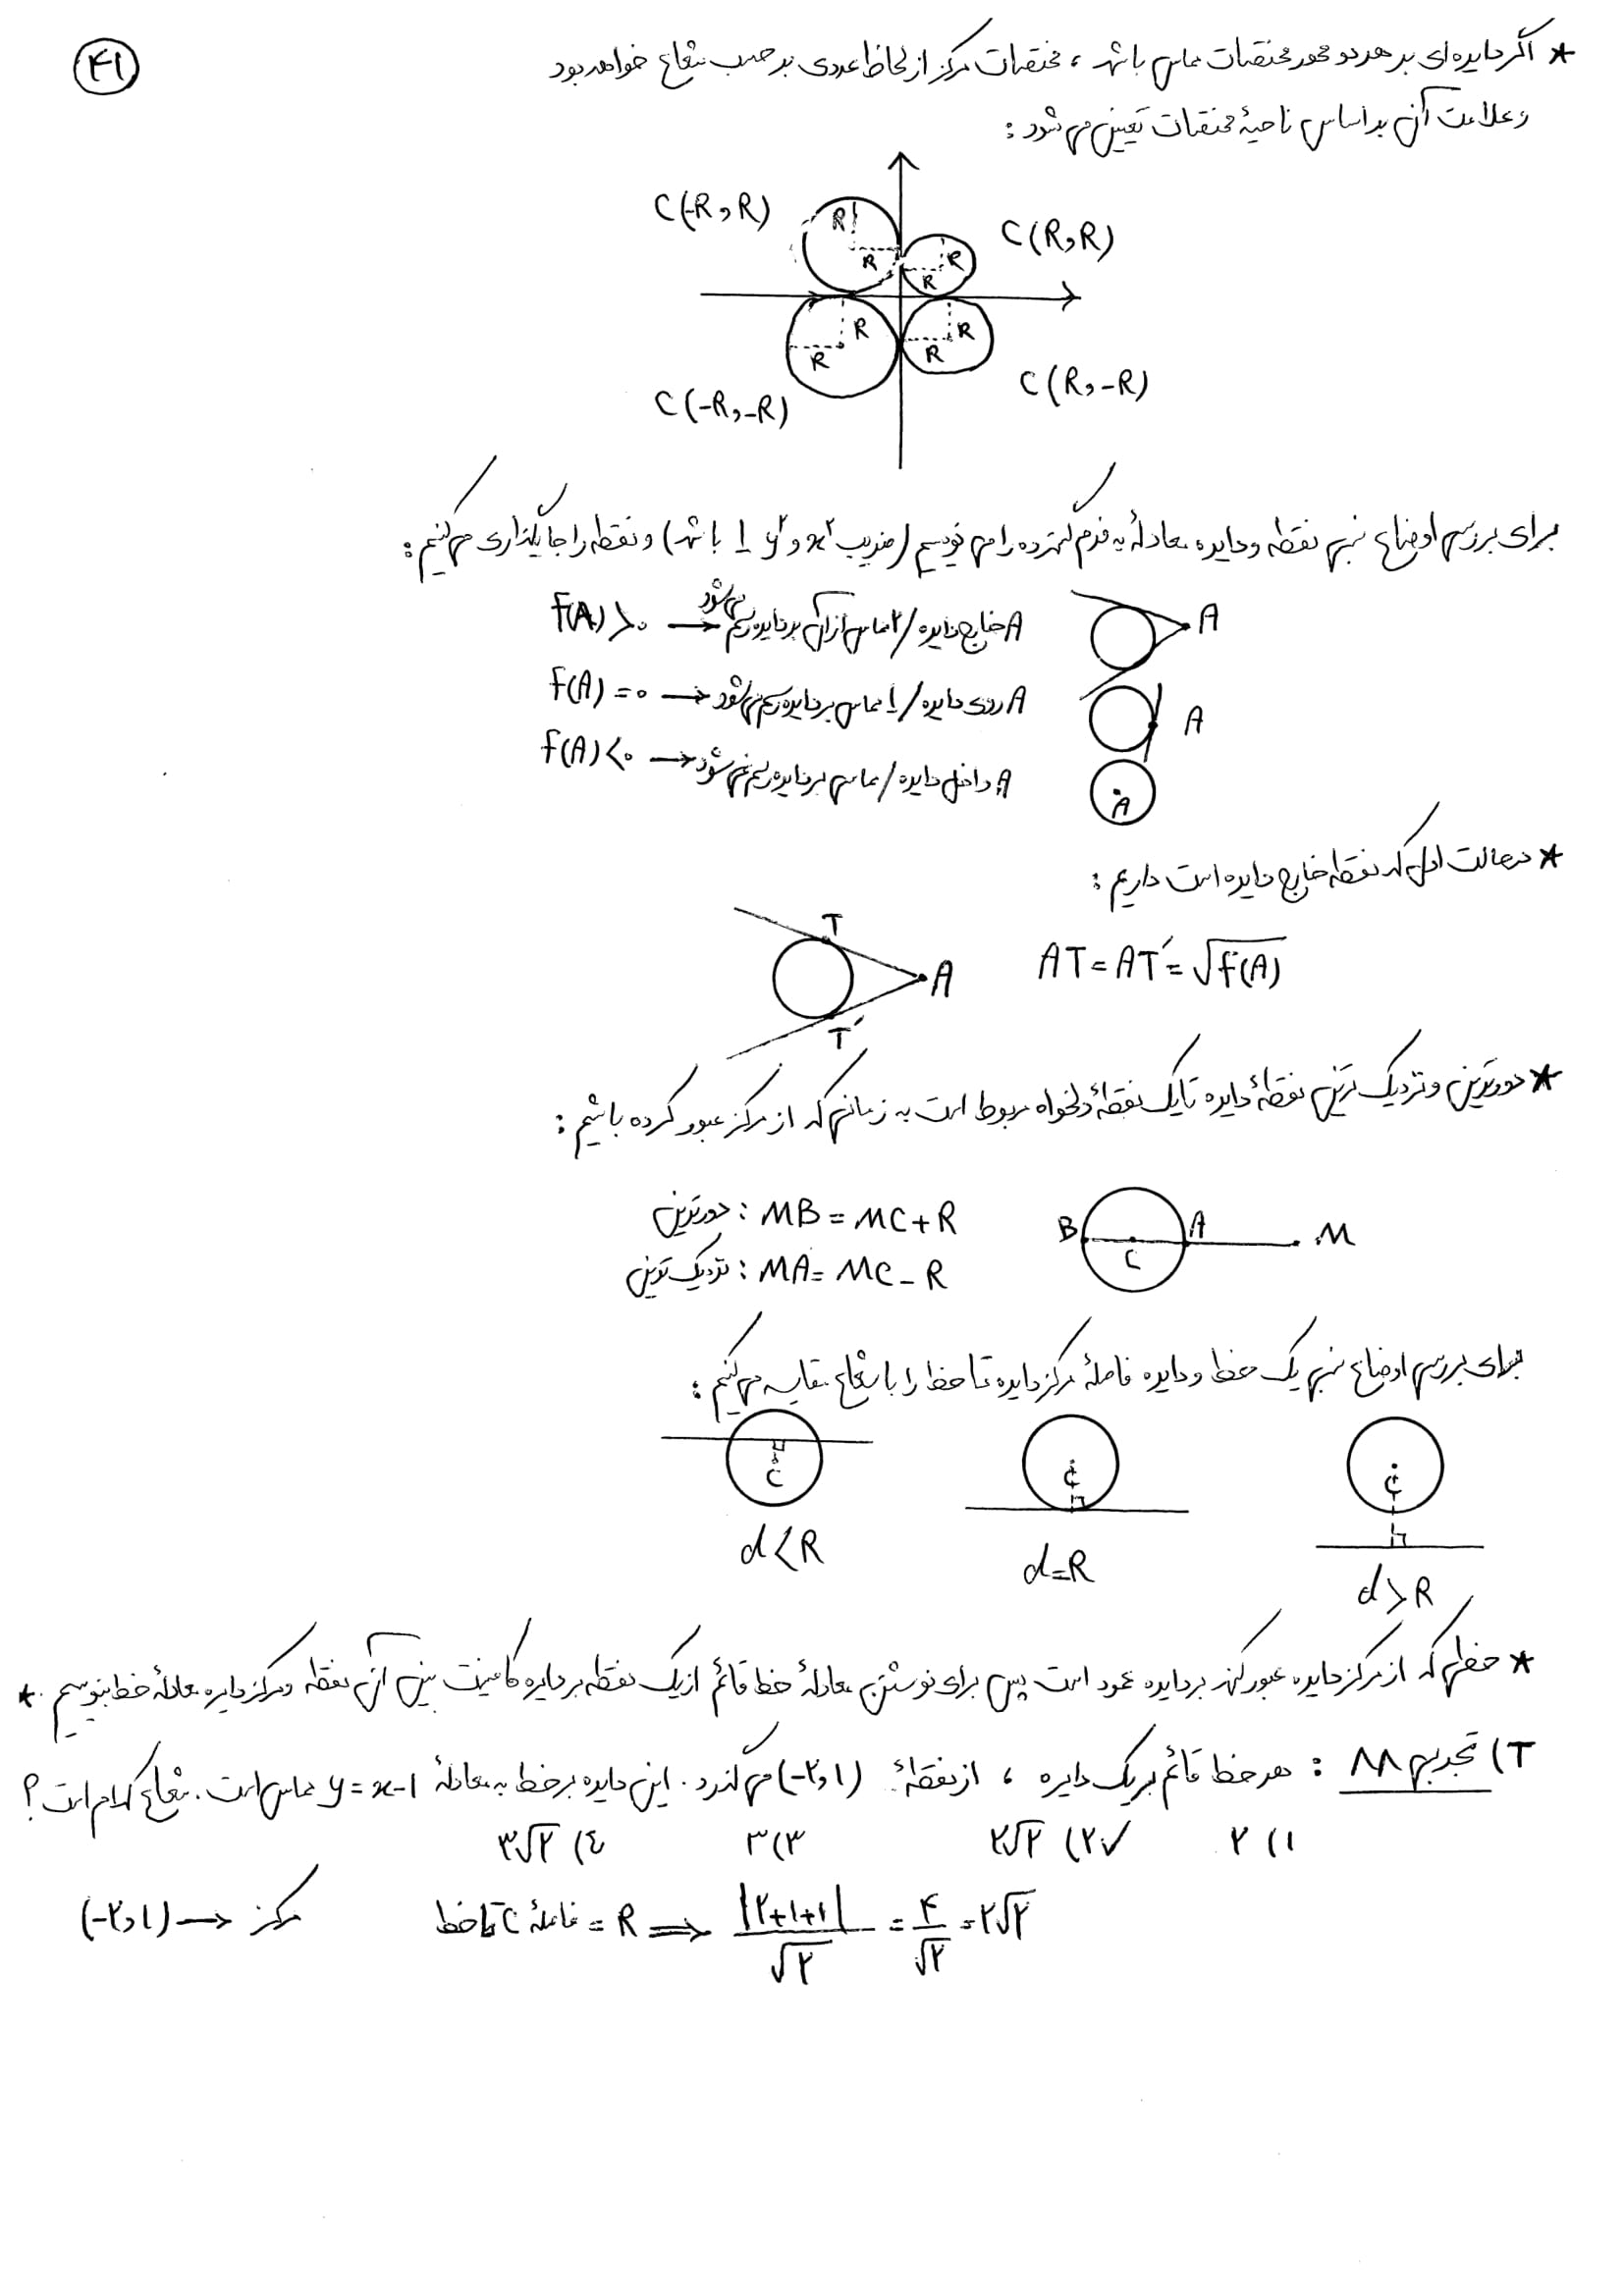 ۴۱
* اگر دایره‌ای بر هر دو محور مختصات مماس باشد ، مختصات مرکز از لحاظ عددی بر حسب شعاع خواهد بود
و علامت آن براساس ناحیهٔ مختصات تعیین می‌شود :
C(-R,R)
C(R,R)
R
R
R
R
R
R
R
R
C(-R,-R)
C(R,-R)
برای بررسی اوضاع نسبی نقطه و دایره معادله به فرم گسترده را می‌نویسیم (ضریب x² و y² ۱ باشد) و نقطه را جایگذاری می‌کنیم :
A خارج دایره / ۲ مماس از آن بر دایره رسم می‌شود → f(A)>۰
A
A روی دایره / ۱ مماس بر دایره رسم می‌شود → f(A)=۰
A
A داخل دایره / مماسی بر دایره رسم نمی‌شود → f(A)<۰
A
* در حالت اول که نقطه خارج دایره است داریم :
T
A
T′
AT = AT′ = √f(A)
* دورترین و نزدیک ترین نقطهٔ دایره تا یک نقطهٔ دلخواه مربوط است به زمانی که از مرکز عبور کرده باشیم :
دورترین : MB = MC + R
نزدیک ترین : MA = MC - R
B C A M
برای بررسی اوضاع نسبی یک خط و دایره فاصلهٔ مرکز دایره تا خط را با شعاع مقایسه می‌کنیم :
C
C
C
d<R
d=R
d>R
* خطی که از مرکز دایره عبور کند بر دایره عمود است پس برای نوشتن معادلهٔ خط قائم از یک نقطه بر دایره کافیست بین آن نقطه و مرکز دایره معادلهٔ خط بنویسیم . *
T) تجربی ۸۸ : هر خط قائم بر یک دایره ، از نقطهٔ (-۲,۱) می‌گذرد . این دایره بر خط به معادلهٔ y = x-1 مماس است . شعاع کدام است ؟
۱) ۲ ✓۲) ۲√۲ ۳) ۳ ٤) ۳√۲
(-۲,۱) → مرکز فاصلهٔ C تا خط = R ⟹ |۲+۱+۱| / √۲ = ۴/√۲ = ۲√۲